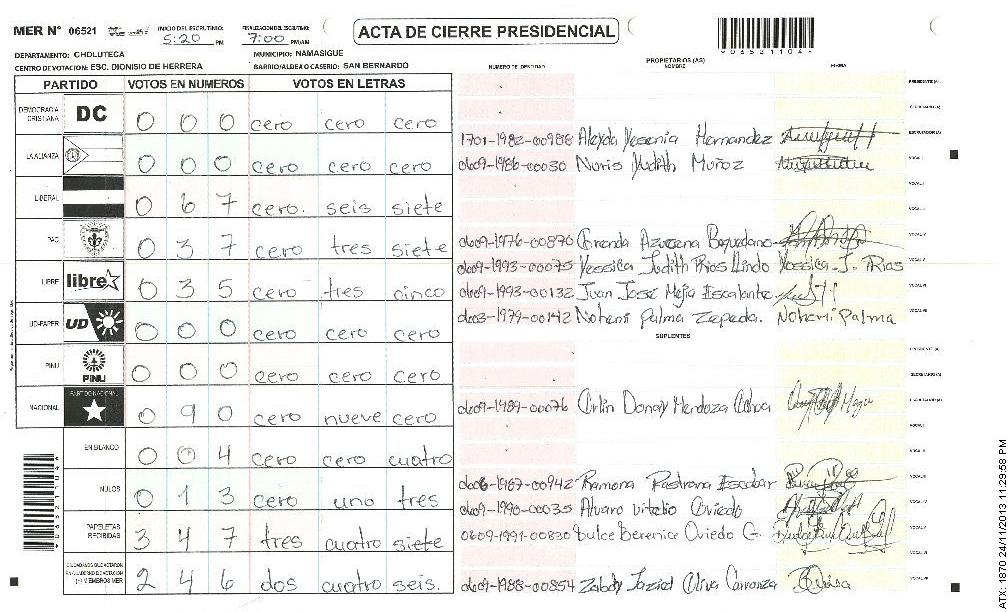 MER N° 06521 INICIO DEL ESCRUTINIO: 5:20 PM FINALIZACION DEL ESCRUTINIO: 7:00 PM/AM
ACTA DE CIERRE PRESIDENCIAL
DEPARTAMENTO: CHOLUTECA MUNICIPIO: NAMASIGUE
CENTRO DE VOTACION: ESC. DIONISIO DE HERRERA BARRIO/ALDEA O CASERIO: SAN BERNARDO
PARTIDO VOTOS EN NUMEROS VOTOS EN LETRAS
DEMOCRACIA CRISTIANA DC 0 0 0 cero cero cero
LA ALIANZA 0 0 0 cero cero cero
LIBERAL 0 6 7 cero. seis siete
PAC 0 3 7 cero tres siete
LIBRE libre 0 3 5 cero tres cinco
UD-FAPER UD 0 0 0 cero cero cero
PINU PINU 0 0 0 cero cero cero
NACIONAL PARTIDO NACIONAL 0 9 0 cero nueve cero
EN BLANCO 0 0 4 cero cero cuatro
NULOS 0 1 3 cero uno tres
PAPELETAS RECIBIDAS 3 4 7 tres cuatro siete
CIUDADANOS QUE VOTARON EN CUADERNO DE VOTACION (+) MIEMBROS MER 2 4 6 dos cuatro seis.
NUMERO DE IDENTIDAD PROPIETARIOS (AS) NOMBRE FIRMA
PRESIDENTE (A)
SECRETARIO (A)
1701-1982-00988 Aleyda Yesenia Hernandez ESCRUTADOR (A)
0609-1986-00030 Nuris Judith Muñoz VOCAL I
VOCAL II
0609-1976-00870 Brenda Azucena Baquedano
0609-1993-00075 Yessica Judith Rios Lindo Yessica J. Rios
0609-1993-00132 Juan José Mejia Escalante
0603-1979-00142 Nohemi Palma Zepeda. Nohemi Palma
SUPLENTES
PRESIDENTE (A)
SECRETARIO (A)
0609-1989-00076 Orlin Donay Mendoza Ochoa ESCRUTADOR (A)
VOCAL I
0606-1967-00942 Ramona Pastrana Escobar
0609-1990-00035 Alvaro vitelio Oviedo
0609-1991-00830 Dulce Berenice Oviedo G.
0609-1988-00854
ATX 1870 24/11/2013 11:29:58 PM